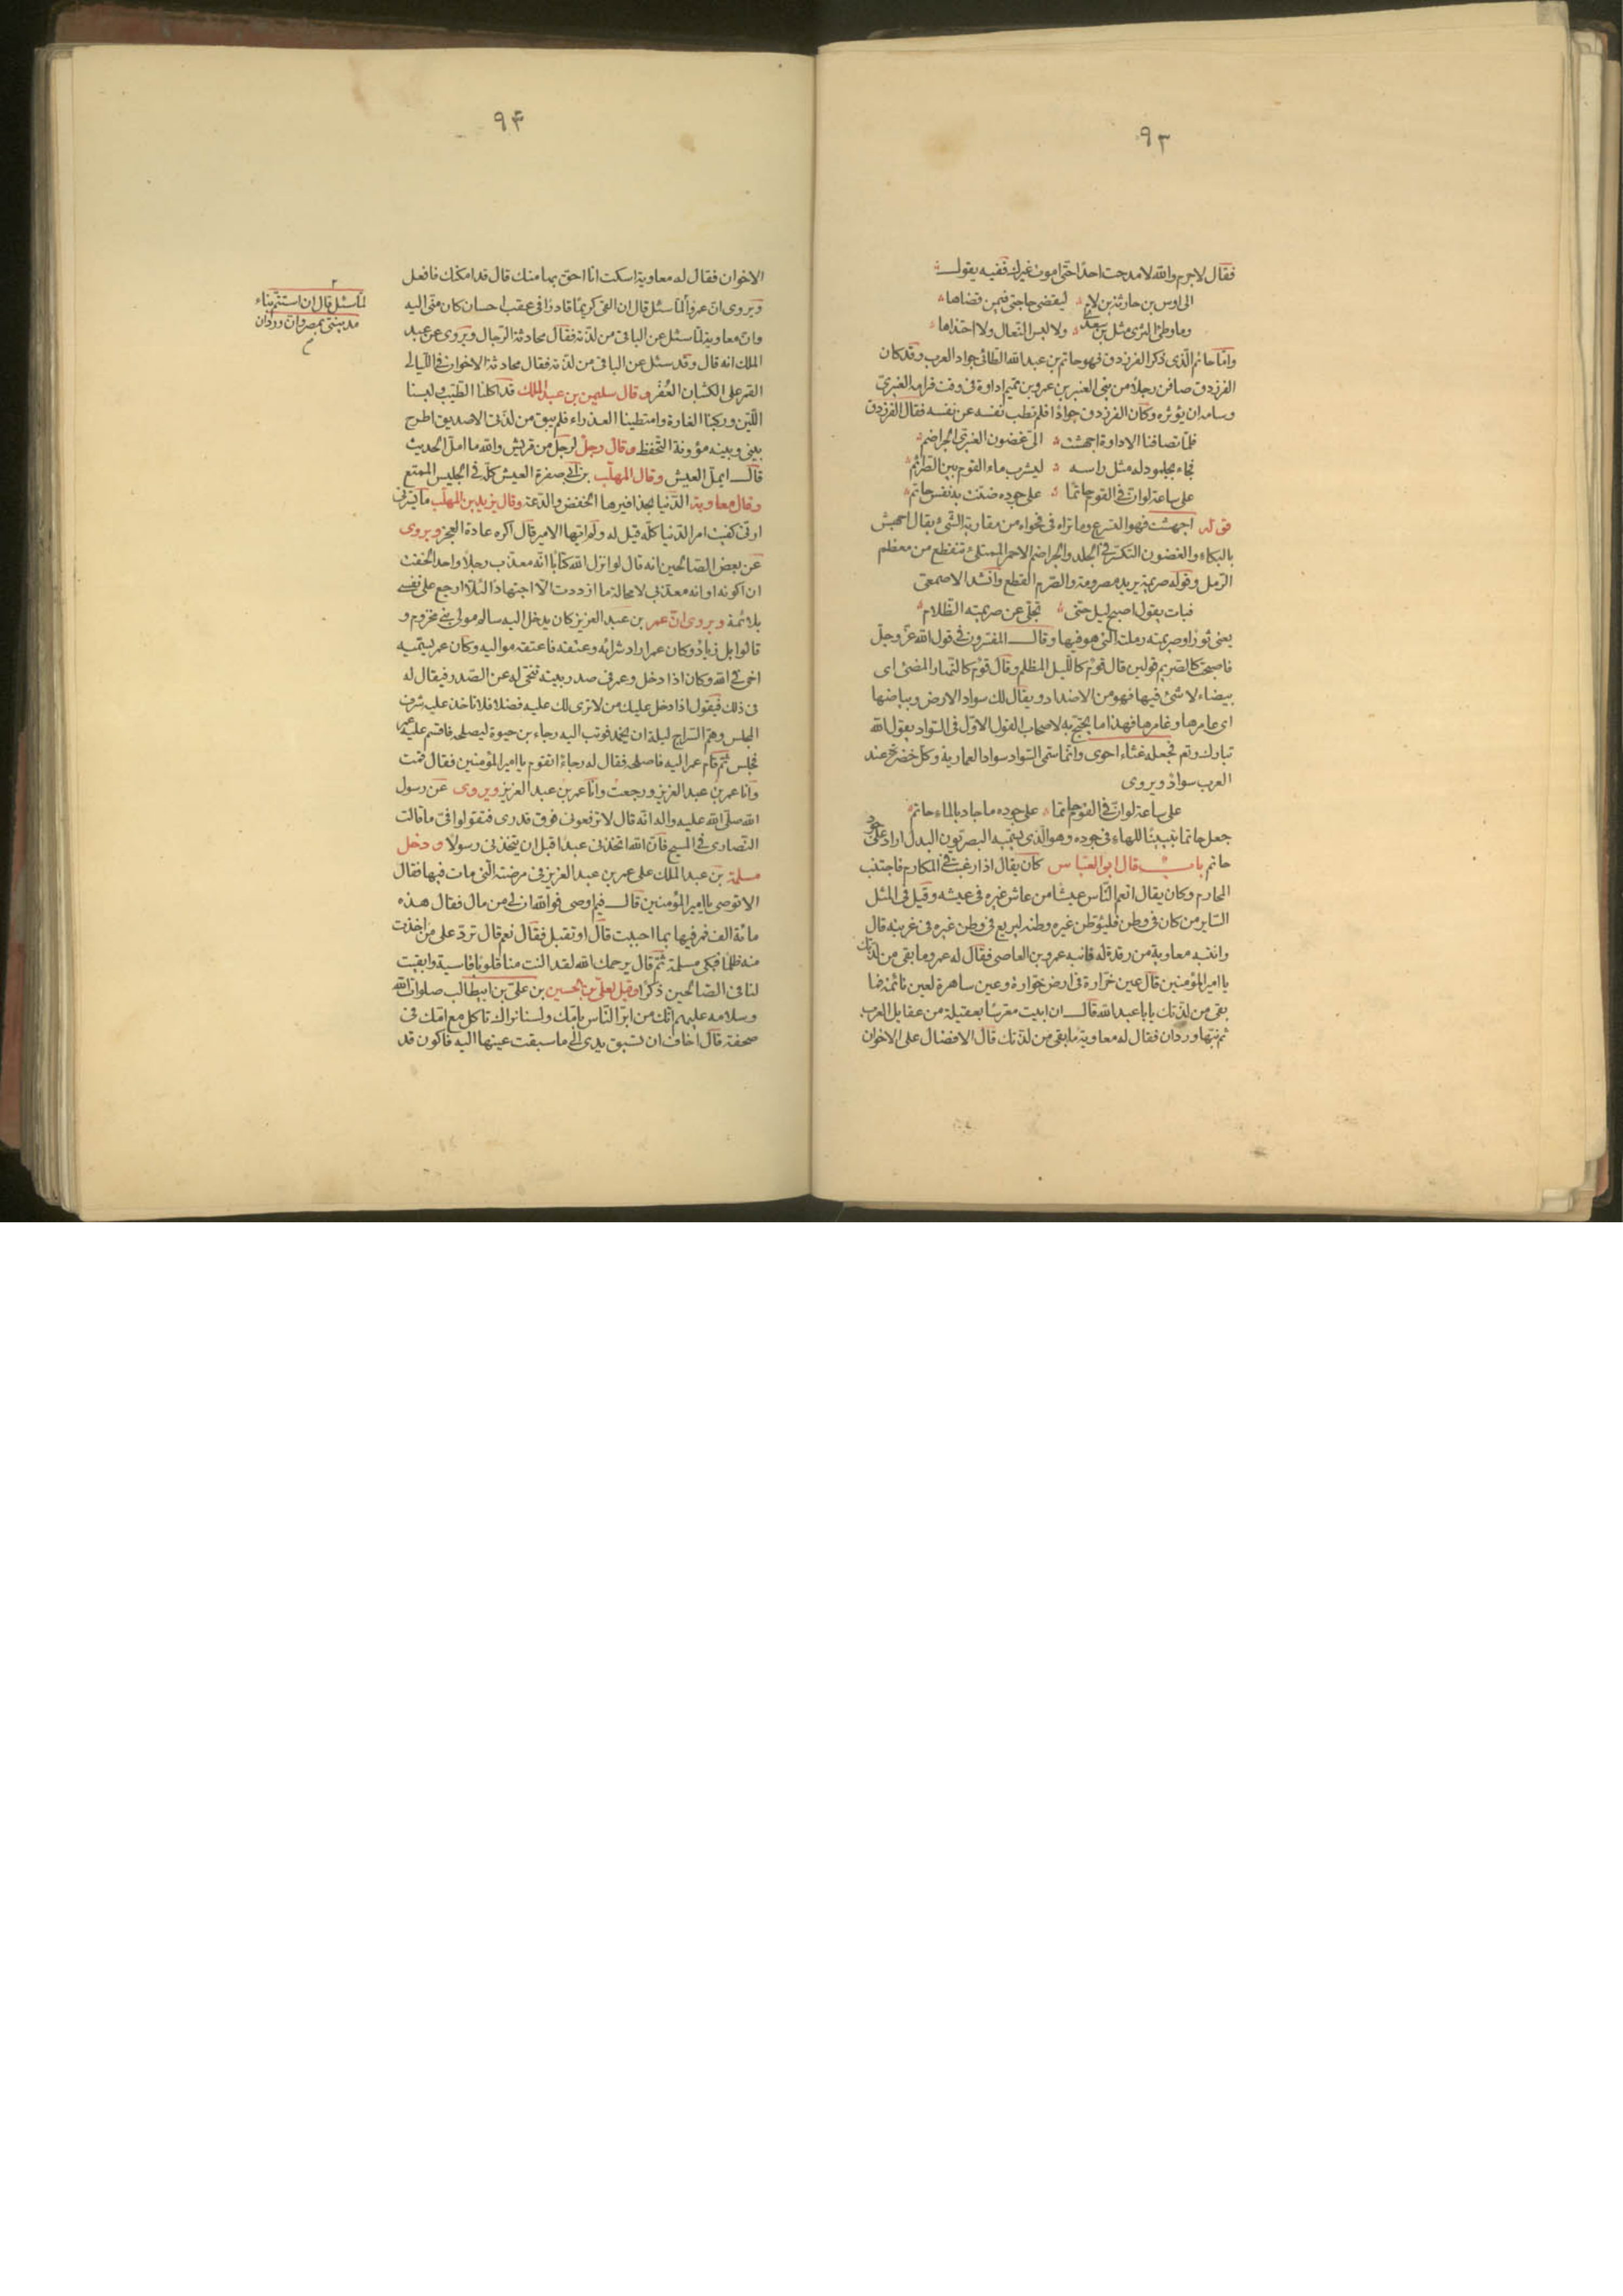 ٩٣
فقال لا جرم والله لا مدحت احدًا حتى اموت غيرك ففيه يقول
الى اوس بن حارثة بن لام ليقضي حاجتي فيمن قضاها
وما وطئ الثرى مثل بن سعدى ولا لبس النعال ولا احتذاها
وامّا حاتم الّذى ذكر الفرزدق فهو حاتم بن عبد الله الطائى جواد العرب وقد كان
الفرزدق صافن رجلاً من بنى العنبر بن عمرو بن تميم اداوة فى وقت فرامه العنبرىّ
وسامه ان يؤثره وكان الفرزدق جوادًا فلم تطب نفسه عن نفسه فقال الفرزدق
فلمّا تصافنّا الاداوة اجهشت الىّ غضون العنبرىّ الجراضم
فجاء بجلمود له مثل راسه ليشرب ماء القوم بين الصّرائم
على ساعة لو انّ فى القوم حاتمًا على جوده ضنّت به نفس حاتم
قوله اجهشت فهو التسرع وما تراه فى فحواه من مقاربة الشئ يقال اجهش
بالبكاء والغضون التكسّر فى الجلد والجراضم الاحمر الممتلئ تنقطع من معظم
الرّمل وقوله صريمة يريد مصرومة والصّرم القطع وانشد الاصمعى
فبات يقول اصبح ليل حتى تجلّى عن صريمته الظلام
يعنى ثورًا وصريمته رملته الّتى هو فيها وقال المفسّرون فى قول الله عزّ وجلّ
فاصبحت كالصّريم قولين قال قوم كالّليل المظلم وقال قوم كالنّهار المضئ اى
بيضاء لا شئ فيها فهو من الاضداد ويقال لك سواد الارض وبياضها
اى عامرها وغامرها فهذا ما يحتجّ به لاصحاب القول الاوّل فى السّواد بقول الله
تبارك وتع فجعله غثاء احوى وانّما سمّى السّواد سوادا لعمارته وكل خضرة عند
العرب سواد ويروى
على ساعة لو انّ فى القوم حاتما على جوده ما جاد بالماء حاتم
جعل حاتما تبيينًا للهاء فى جوده وهو الّذى يسمّيه البصريّون البدل اراد على جود
حاتم باب قال ابو العبّاس كان يقال اذا رغبت فى المكارم فاجتنب
المحارم وكان يقال انعم النّاس عيشًا من عاش غيره فى عيشه وقيل فى المثل
السّاير من كان فى وطن فليؤطن غيره وطنه ليرتع فى وطن غيره فى غربته قال
وانتبه معاوية من رقدة له فانبه عمرو بن العاصى فقال له عمرو ما بقى من لذّتك
يا امير المؤمنين قال عين خرّارة فى ارض خوّارة وعين ساهرة لعين نائمة فما
بقى من لذّتك يا با عبد الله قال ان ابيت معرّسًا بعقيلة من عقايل العرب
ثم نبّها وردان فقال له معاوية ما بقى من لذّتك قال الافضال على الاخوان
٩٤
الاخوان فقال له معاوية اسكت انا احق بها منك قال قد امكنك فافعل
ويروى انّ عمروًا لمّا سئل قال ان القى كريمًا قادرًا فى عقب احسان كان منّى اليه
وان معاوية لمّا سئل عن الباقى من لذّته فقال محادثة الرّجال ويروى عن عبد
الملك انه قال وقد سئل عن الباقى من لذّته فقال محادثة الاخوان فى اللّيالى
القمر على الكثبان العفر وقال سليمن بن عبد الملك قد اكلنا الطّيّب ولبسنا
اللّيّن وركبنا الفارة وامتطينا العذراء فلم يبق من لذّتى الا صديق اطرح
بينى وبينه مؤونة التّحفظ وقال رجل لرجل من قريش والله ما املّ الحديث
قال ايملّ العيش وقال المهلّب بن ابى صفرة العيش كلّه فى الجليس الممتع
وقال معاوية الدّنيا بحذافيرها الخفض والدّعة وقال يزيد بن المهلّب ما يسرّنى
انّى كفيت امر الدّنيا كلّه قيل له ولم ايّها الامير قال اكره عادة العجز ويروى
عن بعض الصّالحين انه قال لو انزل الله كتابًا انّه معذّب رجلاً واحدا لخفت
ان اكونه او انه معذّبى لا محالة ما ازددت الّا اجتهادًا لئلّا ارجع على نفسى
بلائمة ويروى انّ عمر بن عبد العزيز كان يدخل اليه سالم مولى بنى مخزوم و
قالوا بل زياد وكان عمر اراد شرائه وعتقه فاعتقه مواليه وكان عمر يسمّيه
اخى فى الله وكان اذا دخل وعمر فى صدر بيته تنحّى له عن الصّدر فيقال له
فى ذلك فيقول اذا دخل عليك من لا ترى لك عليه فضلا فلا تاخذ عليه شرف
المجلس وهمّ السّراج ليلة ان يخمد فوثب اليه رجاء بن حيوة ليصلحه فاقسم عليه عمر
فجلس ثمّ قام عمر اليه فاصلحه فقال له رجاء اتقوم يا امير المؤمنين فقال قمت
وانا عمر بن عبد العزيز ورجعت وانا عمر بن عبد العزيز ويروى عن رسول
الله صلّى الله عليه واله انّه قال لا ترفعونى فوق قدرى فتقولوا فىّ ما قالت
النّصارى فى المسيح فانّ الله اتخذنى عبدا قبل ان يتخذنى رسولاً ودخل
مسلمة بن عبد الملك على عمر بن عبد العزيز فى مرضته الّتى مات فيها فقال
الا توصى يا امير المؤمنين قال فيم اوصى فو الله ان لى من مال فقال هذه
مائة الف فمر فيها بما احببت قال او تقبل فقال نعم قال تردّ على من اخذت
منه ظلمًا فبكى مسلمة ثمّ قال يرحمك الله لقد النت منا قلوبا قاسية وابقيت
لنا فى الصّالحين ذكرًا وقيل لعلىّ بن الحسين بن علىّ بن ابيطالب صلوات الله
وسلامه عليهم انّك من ابرّ النّاس بامّك ولسنا نراك تاكل مع امّك فى
صحفة قال اخاف ان تسبق يدى الى ما سبقت عينها اليه فاكون قد
لمّا سئل قال ان استتمّ بناء
مدينتى بمصر وانّ وردان